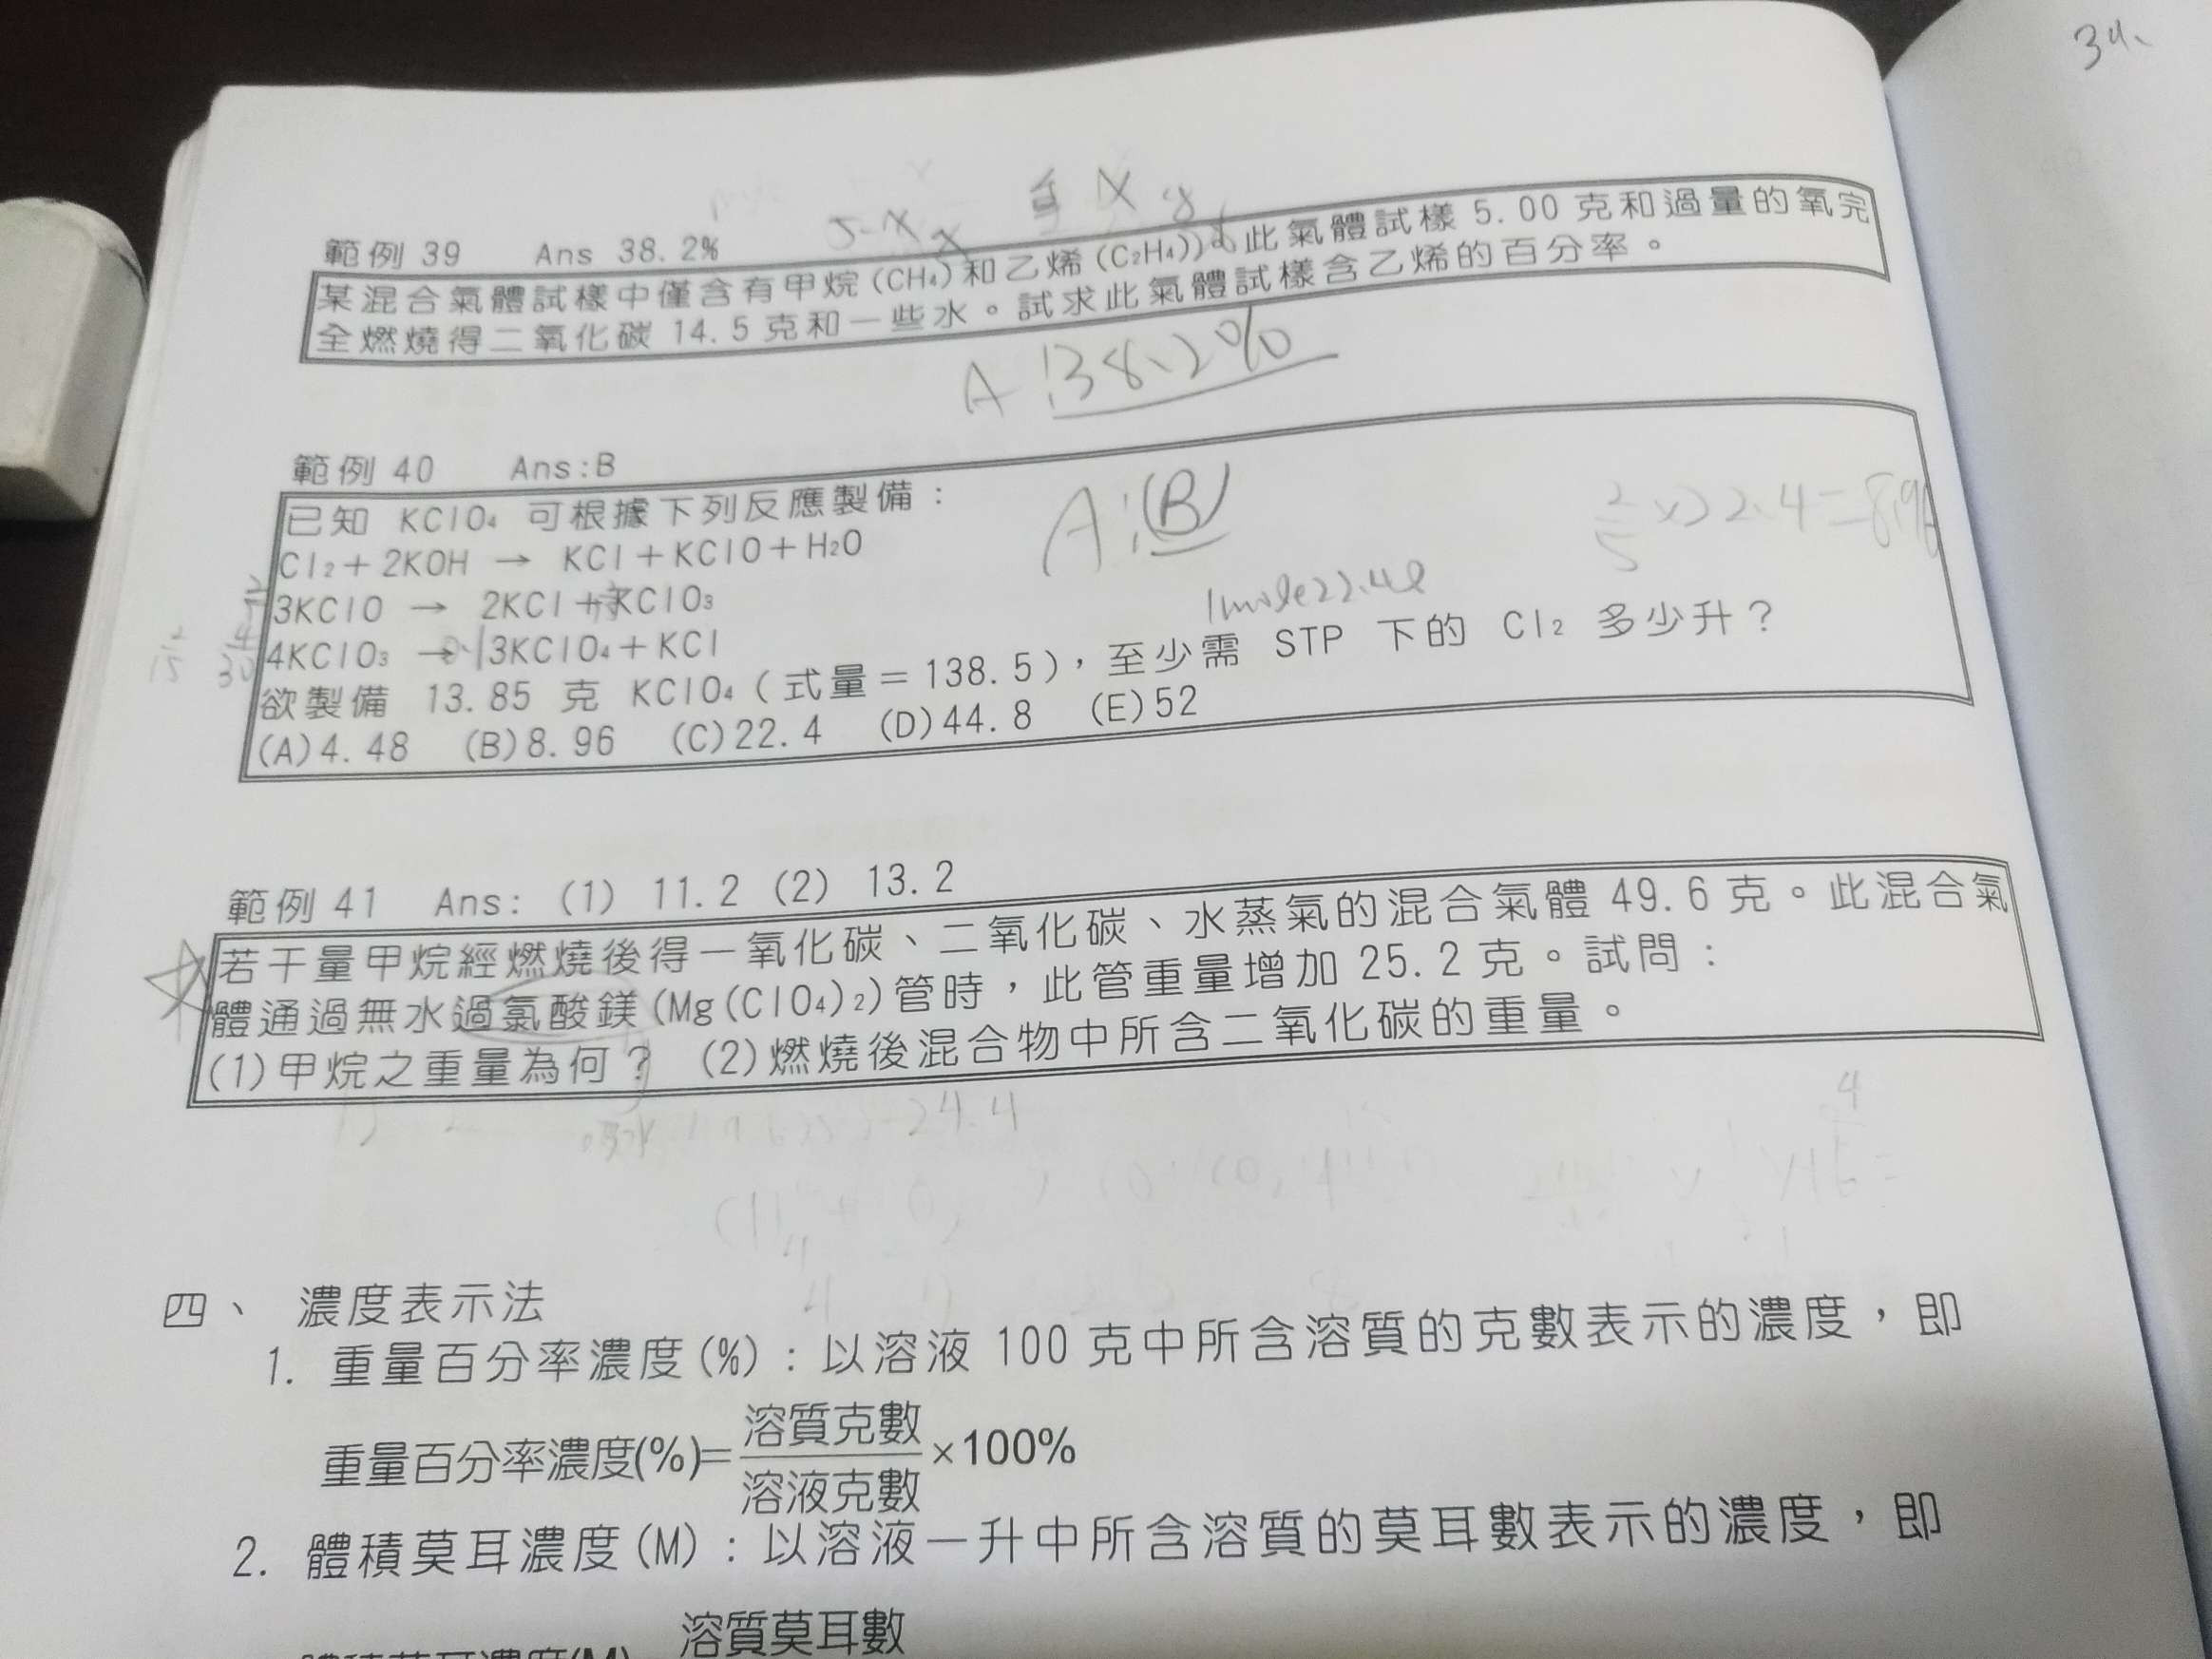 34、
5-X X
X g
範例 39 Ans 38.2%
某混合氣體試樣中僅含有甲烷(CH₄)和乙烯(C₂H₄)),此氣體試樣 5.00 克和過量的氧完
全燃燒得二氧化碳 14.5 克和一些水。試求此氣體試樣含乙烯的百分率。
A:38.2%
範例 40 Ans:B
已知 KClO₄ 可根據下列反應製備:
A:(B)
2/5×22.4=8.96
Cl₂+2KOH → KCl+KClO+H₂O
3KClO → 2KCl+KClO₃
1mole22.4l
4KClO₃ → 3KClO₄+KCl
欲製備 13.85 克 KClO₄(式量=138.5),至少需 STP 下的 Cl₂ 多少升?
(A)4.48 (B)8.96 (C)22.4 (D)44.8 (E)52
範例 41 Ans: (1) 11.2 (2) 13.2
若干量甲烷經燃燒後得一氧化碳、二氧化碳、水蒸氣的混合氣體 49.6 克。此混合氣
體通過無水過氯酸鎂(Mg(ClO₄)₂)管時,此管重量增加 25.2 克。試問:
(1)甲烷之重量為何? (2)燃燒後混合物中所含二氧化碳的重量。
24.4
四、 濃度表示法
1. 重量百分率濃度(%):以溶液 100 克中所含溶質的克數表示的濃度,即
重量百分率濃度(%)=溶質克數/溶液克數×100%
2. 體積莫耳濃度(M):以溶液一升中所含溶質的莫耳數表示的濃度,即
溶質莫耳數